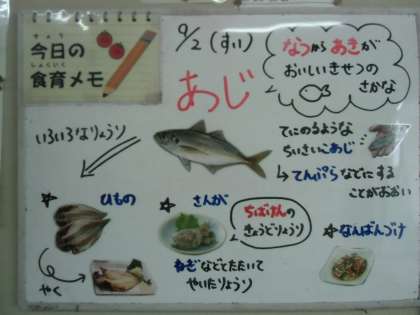 きょう
今日の
しょくいく
食育メモ
9/2 (すい)
あじ
なつから あきが
おいしいきせつの
さかな
いろいろなりょうり
てにのるような
ちいさいこあじ
→ てんぷらなどにする
ことがおおい
☆ ひもの
やく
☆ さんが
ちばけんの
きょうどりょうり
ねぎなどとたたいて
やいたりょうり
☆ なんばんづけ